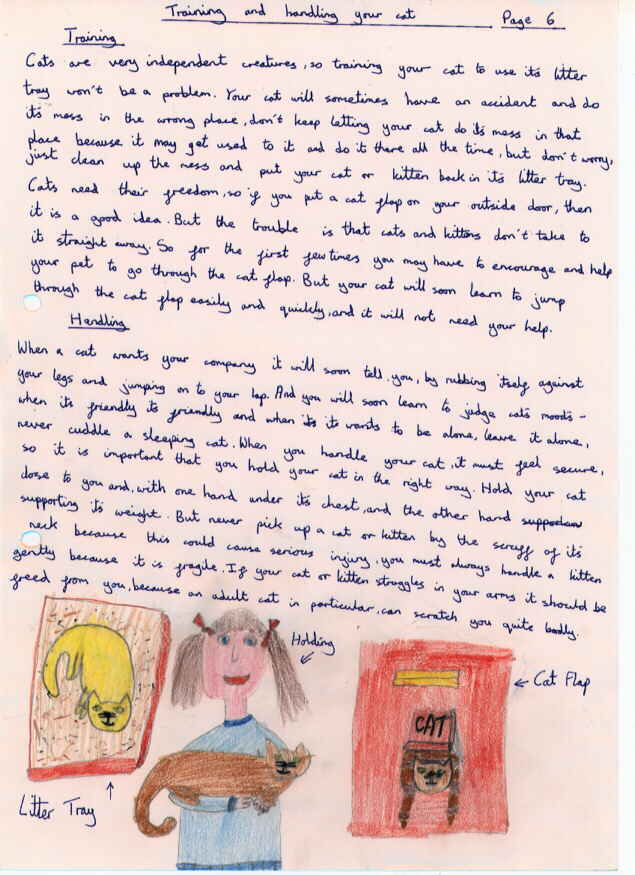 Training and handling your cat Page 6
Training
Cats are very independent creatures, so training your cat to use its litter
tray won't be a problem. Your cat will sometimes have an accident and do
it's mess in the wrong place, don't keep letting your cat do its mess in that
place because it may get used to it and do it there all the time, but don't worry,
just clean up the mess and put your cat or kitten back in its litter tray.
Cats need their freedom, so if you put a cat flap on your outside door, then
it is a good idea. But the trouble is that cats and kittens don't take to
it straight away. So for the first few times you may have to encourage and help
your pet to go through the cat flap. But your cat will soon learn to jump
through the cat flap easily and quickly, and it will not need your help.
Handling
When a cat wants your company it will soon tell you, by rubbing itself against
your legs and jumping on to your lap. And you will soon learn to judge cats moods -
when its friendly its friendly and when it wants to be alone, leave it alone,
never cuddle a sleeping cat. When you handle your cat, it must feel secure,
so it is important that you hold your cat in the right way. Hold your cat
close to you and, with one hand under its chest, and the other hand
supporting its weight. But never pick up a cat or kitten by the scruff of its
neck because this could cause serious injury, you must always handle a kitten
gently because it is fragile. If your cat or kitten struggles in your arms it should be
freed from you, because an adult cat in particular, can scratch you quite badly.
Holding
Cat Flap
CAT
Litter Tray